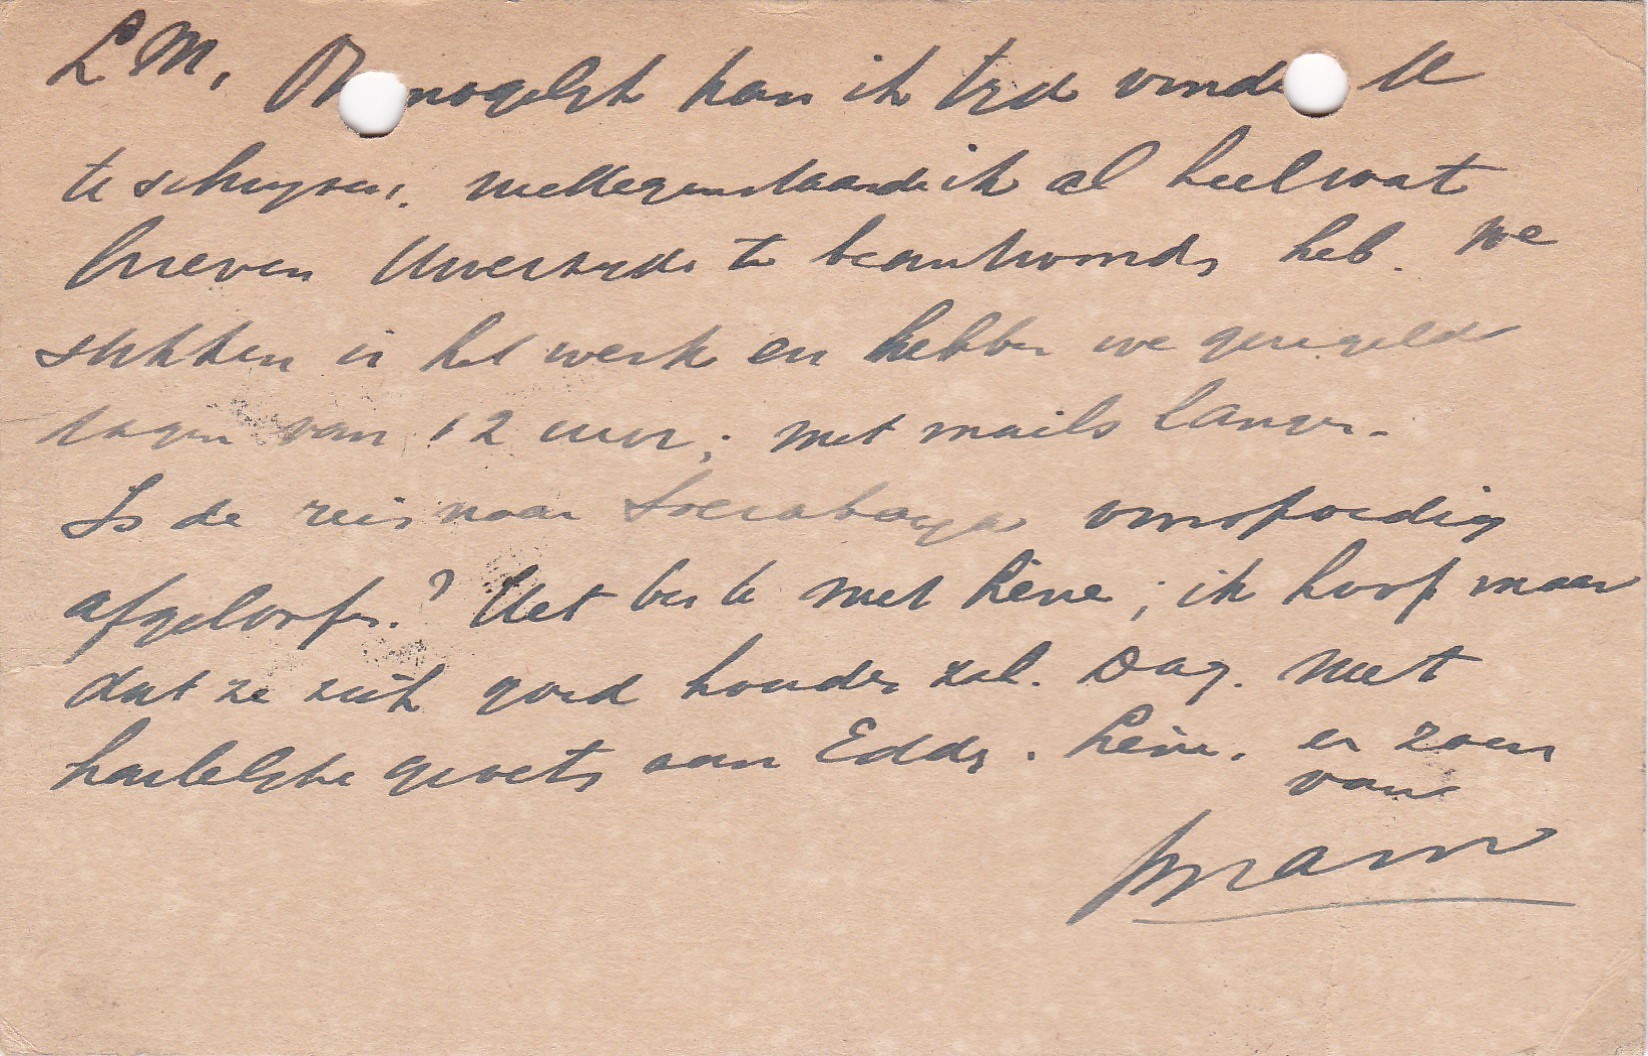 L M, Onmogelijk kan ik tijd vinden U
te schrijven, niettegenstaande ik al heel wat
brieven Uwerzijds te beantwoorden heb. We
stikken in het werk en hebben we geregeld
dagen van 12 uur; met mails langer.
Is de reis naar Soerabaya voorspoedig
afgeloopen? Het beste met Lène; ik hoop maar
dat ze zich goed houden zal. Dag. Met
hartelijke groeten aan Eddy. Lène. en zoen
van
Bram